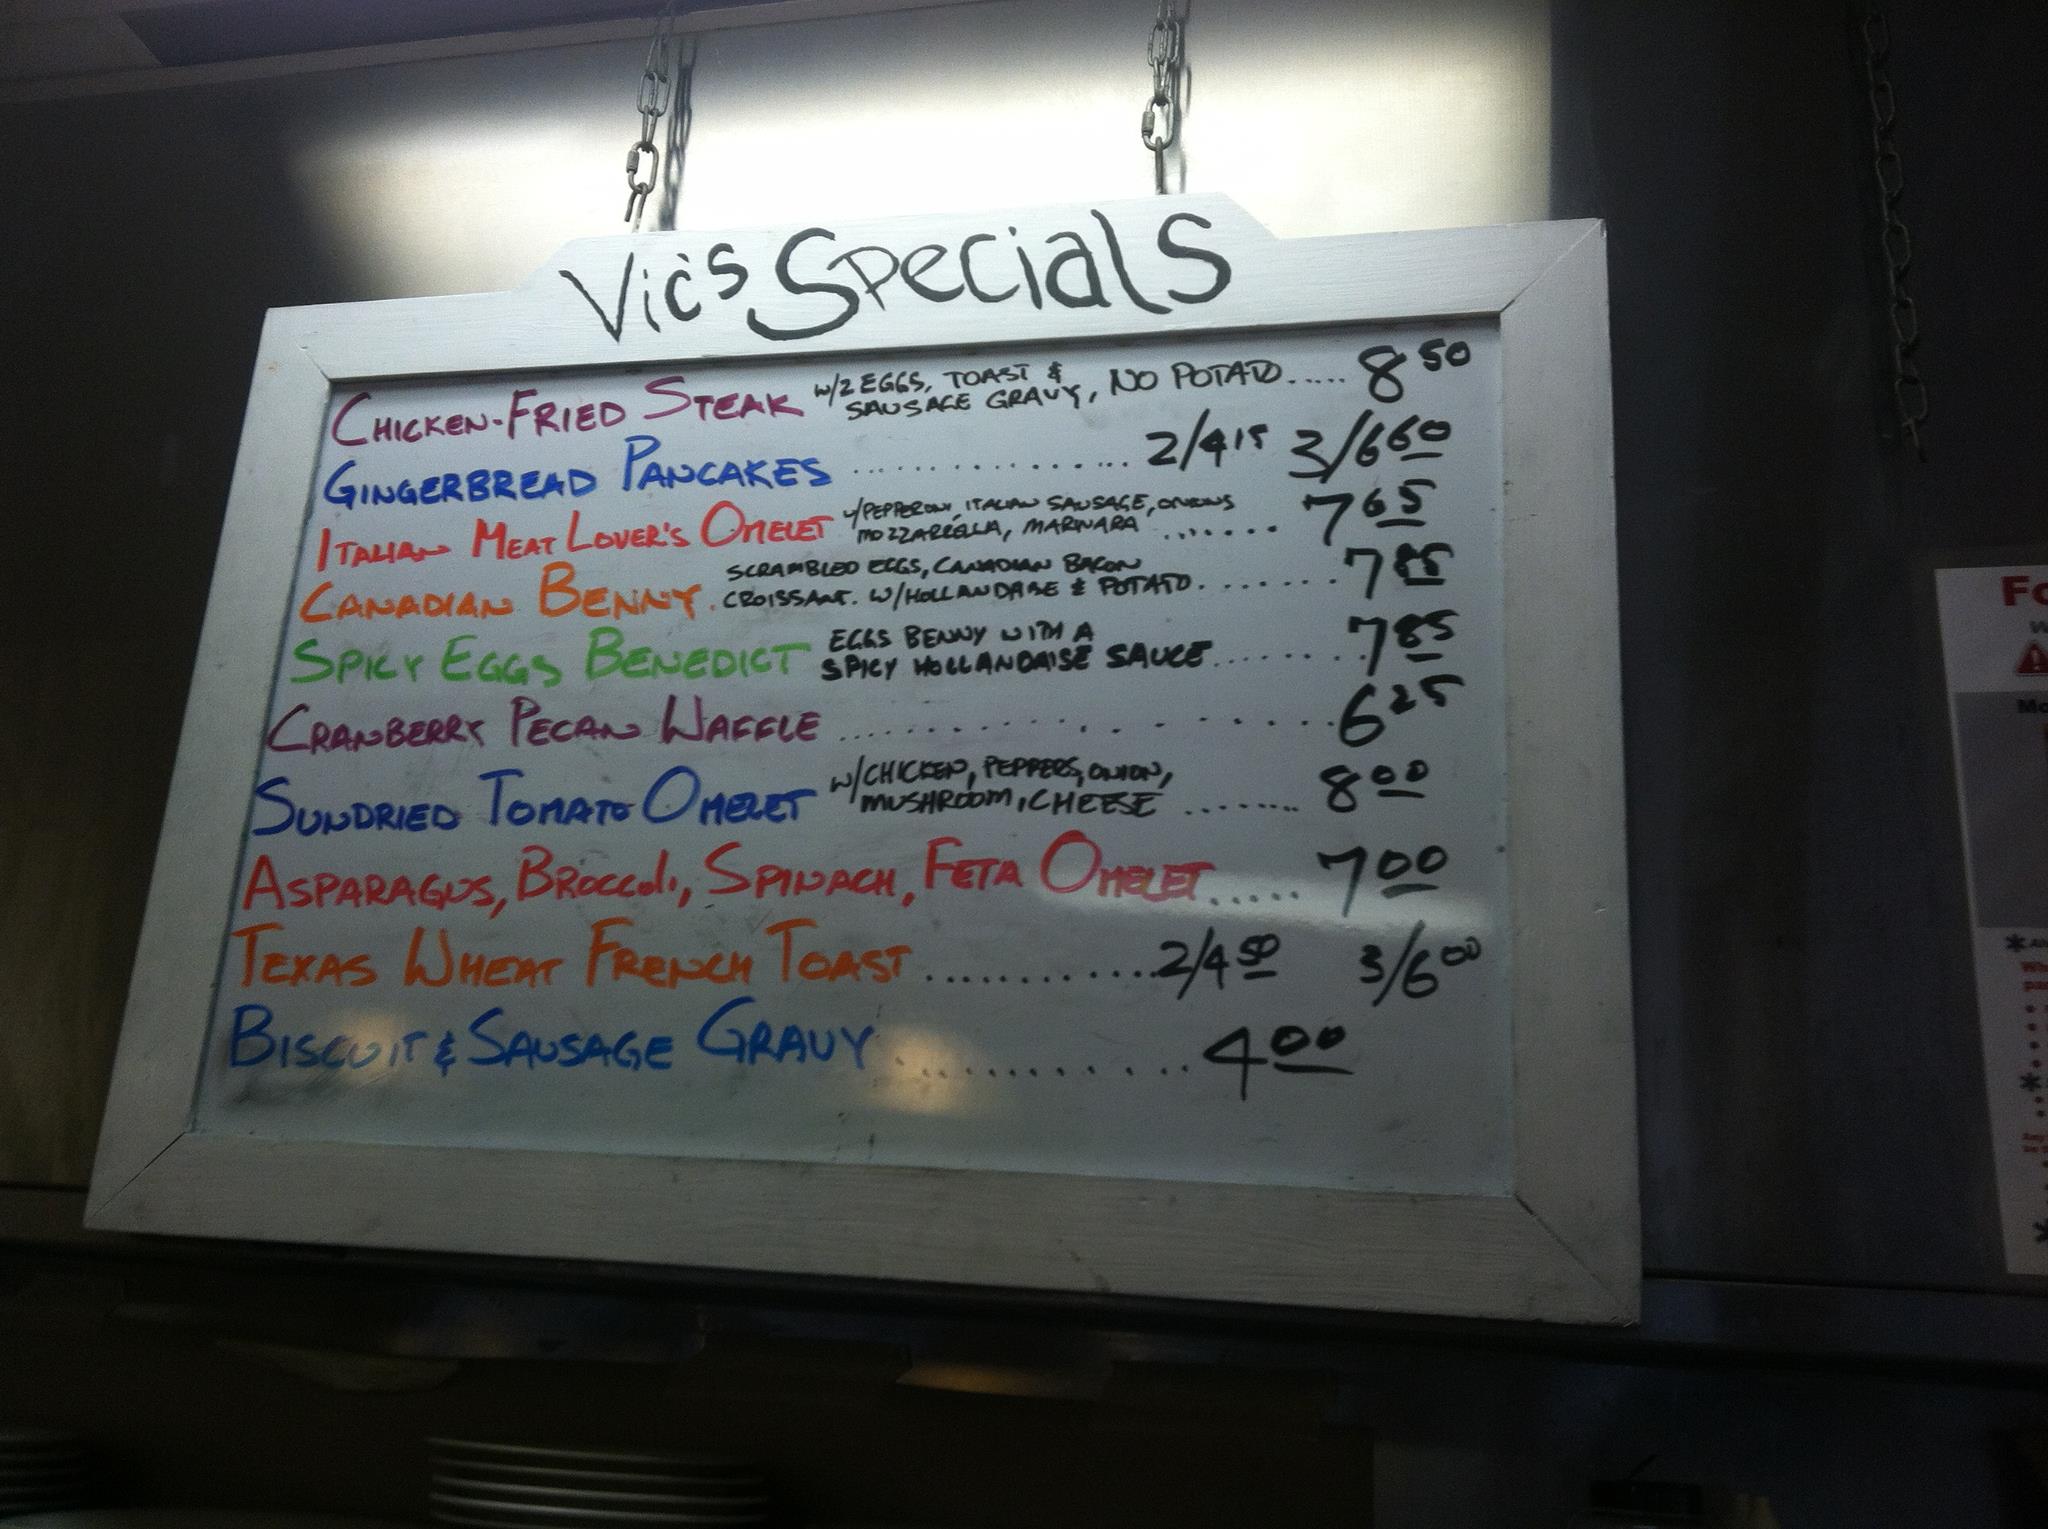 Vic's Specials
Chicken-Fried Steak w/2 eggs, toast & sausage gravy, no potato..... 8 50
Gingerbread Pancakes ................ 2/4 15 3/6 60
Italian Meat Lover's Omelet w/pepperoni, Italian sausage, onions mozzarrella, marinara ....... 7 65
Canadian Benny. scrambled eggs, Canadian bacon croissant. w/hollandaise & potato........ 7 85
Spicy Eggs Benedict eggs benny with a spicy hollandaise sauce........ 7 85
Cranberry Pecan Waffle .................. 6 25
Sundried Tomato Omelet w/chicken, peppers, onion, mushroom, cheese ........ 8 00
Asparagus, Broccoli, Spinach, Feta Omelet..... 7 00
Texas Wheat French Toast............ 2/4 50 3/6 00
Biscuit & Sausage Gravy............ 4 00